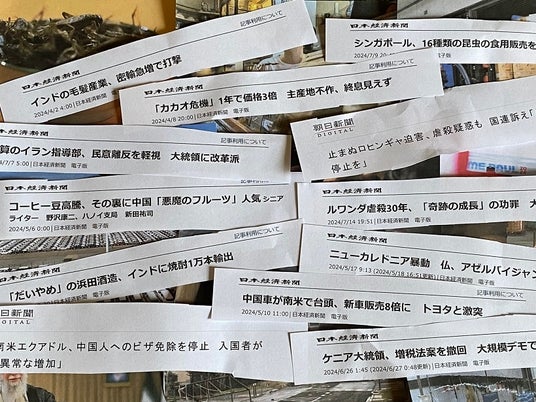 日本経済新聞
記事利用について
インドの毛髪産業、密輸急増で打撃
2024/4/2 4:00 | 日本経済新聞 電子版
日本経済新聞
シンガポール、16種類の昆虫の食用販売を
2024/7/9 20:
日本経済新聞
記事利用について
「カカオ危機」1年で価格3倍 主産地不作、終息見えず
2024/4/8 20:00 | 日本経済新聞 電子版
朝日新聞
DIGITAL
止まぬロヒンギャ迫害、虐殺疑惑も 国連訴え「
停止を」
日本経済新聞
記事利用について
質のイラン指導部、民意離反を軽視 大統領に改革派
/7/7 5:00 | 日本経済新聞 電子版
日本経済新聞
コーヒー豆高騰、その裏に中国「悪魔のフルーツ」人気 シニア
ライター 野沢康二、ハノイ支局 新田祐司
2024/5/6 0:00 | 日本経済新聞 電子版
日本経済新聞
ルワンダ虐殺30年、「奇跡の成長」の功罪 大
2024/7/14 19:51 | 日本経済新聞 電子版
日本経済新聞
ニューカレドニア暴動 仏、アゼルバイジャン
2024/5/17 9:13 (2024/5/18 16:51更新) | 日本経済新聞
日本経済新聞
記事利用について
「だいやめ」の浜田酒造、インドに焼酎1万本輸出
日本経済新聞 電子版
日本経済新聞
中国車が南米で台頭、新車販売8倍に トヨタと激突
2024/5/10 11:00 | 日本経済新聞 電子版
日新聞
IGITAL
南米エクアドル、中国人へのビザ免除を停止 入国者が
異常な増加」
日本経済新聞
ケニア大統領、増税法案を撤回 大規模デモで
2024/6/26 1:45 (2024/6/27 0:48更新) | 日本経済新聞 電子版